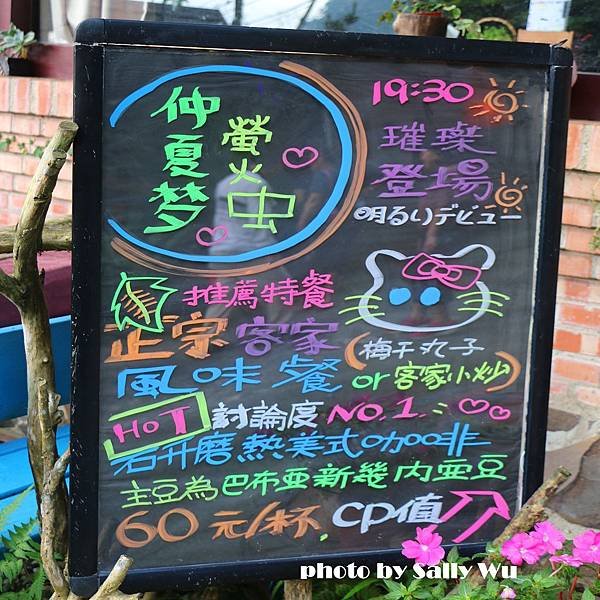 仲夏夢
螢火虫
19:30
璀璨
登場
明るいデビュー
推薦特餐
正宗客家
風味餐
(梅干丸子
or客家小炒)
HOT 討論度 NO.1
石升磨熱美式咖啡
主豆為巴布亞新幾內亞豆
60元/杯 cp值
photo by Sally Wu